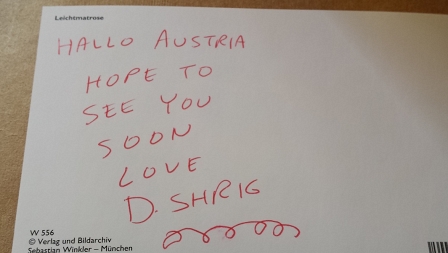 Leichtmatrose
HALLO AUSTRIA
HOPE TO
SEE YOU
SOON
LOVE
D. SHRIG
W 556
© Verlag und Bildarchiv
Sebastian Winkler – München